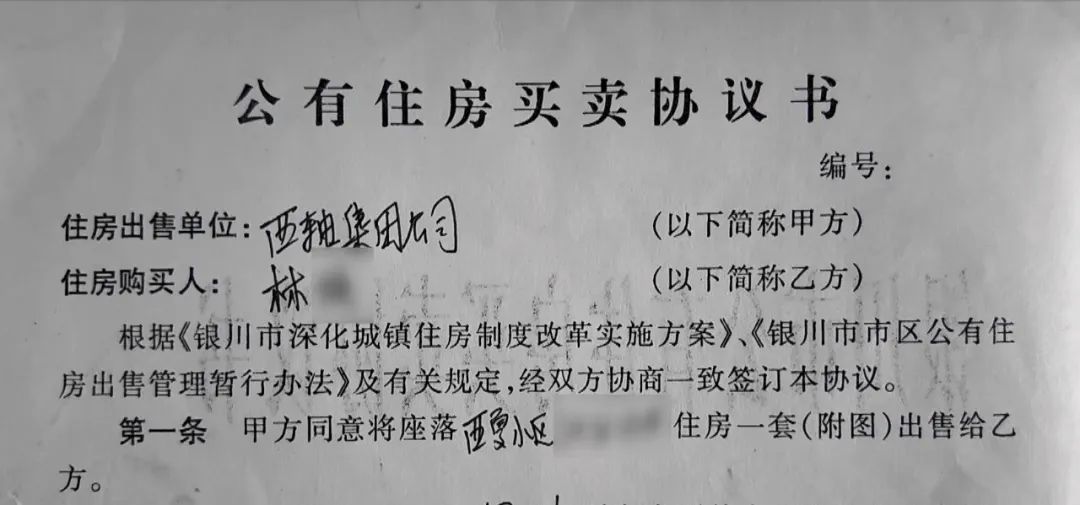 公有住房买卖协议书
编号：
住房出售单位：西轴集团公司 （以下简称甲方）
住房购买人： 林 （以下简称乙方）
根据《银川市深化城镇住房制度改革实施方案》、《银川市市区公有住
房出售管理暂行办法》及有关规定，经双方协商一致签订本协议。
第一条 甲方同意将座落西夏小区 住房一套（附图）出售给乙
方。